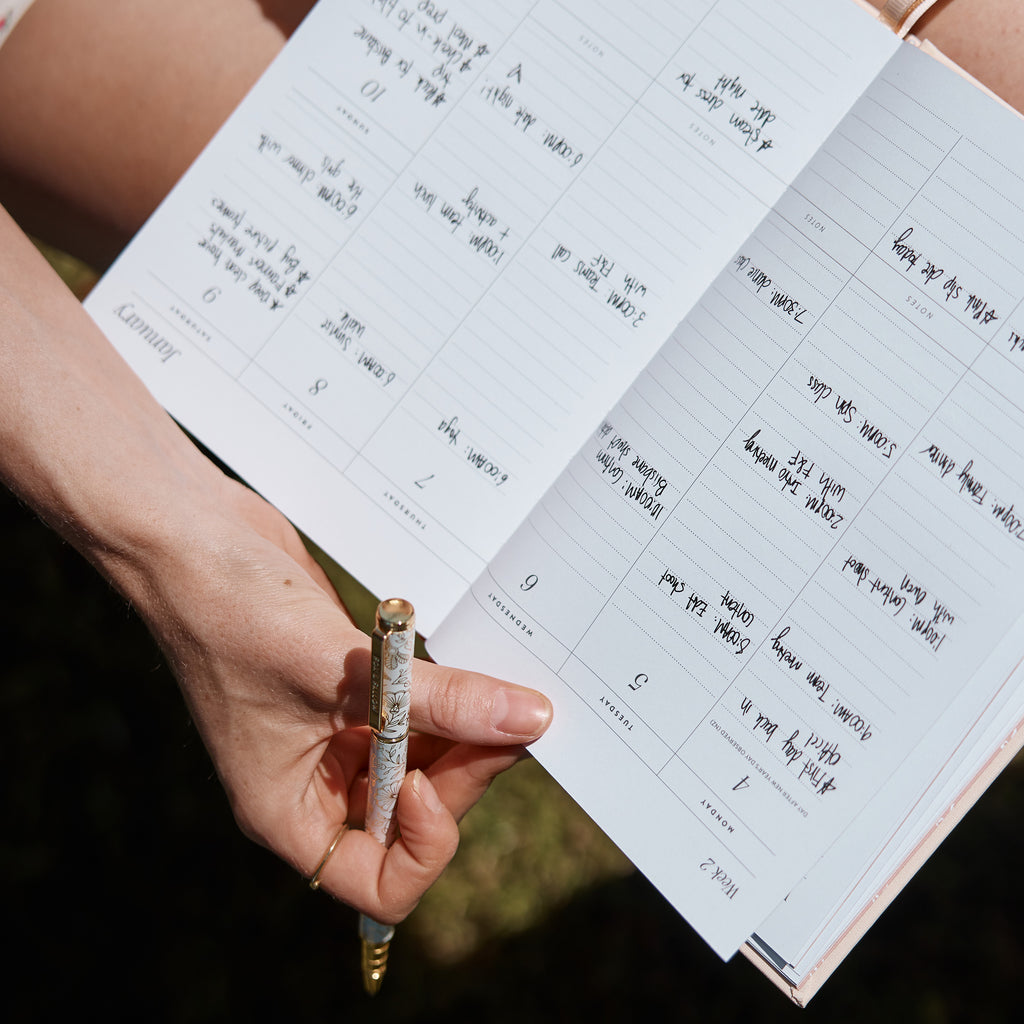 Week 2
MONDAY
4
DAY AFTER NEW YEAR'S DAY OBSERVED (NZ)
* First day back in
office!
9:00AM: Team meeting
1:00PM: Content shoot
with Gwen
7:00PM: Family dinner
TUESDAY
5
8:00AM: Edit shoot
content
2:00PM: Intro meeting
with F&F
5:00PM: Spin class
NOTES
* Pink slip due today
WEDNESDAY
6
10:00AM: Confirm
Brisbane shoot
7:30PM: dance class
NOTES
THURSDAY
7
6:00AM: Yoga
3:00PM: Teams call
with F&F
NOTES
* steam dress for
date night
FRIDAY
8
6:00AM: Sunrise
walk
1:00PM: team lunch
+ activity
6:00PM: date night!
NOTES
January
SATURDAY
9
* Deep clean house
* Farmers markets
* Buy picture frames
6:00PM: dinner with
the girls
SUNDAY
10
* Pack for Brisbane
trip
* Check-in to
* Meal prep